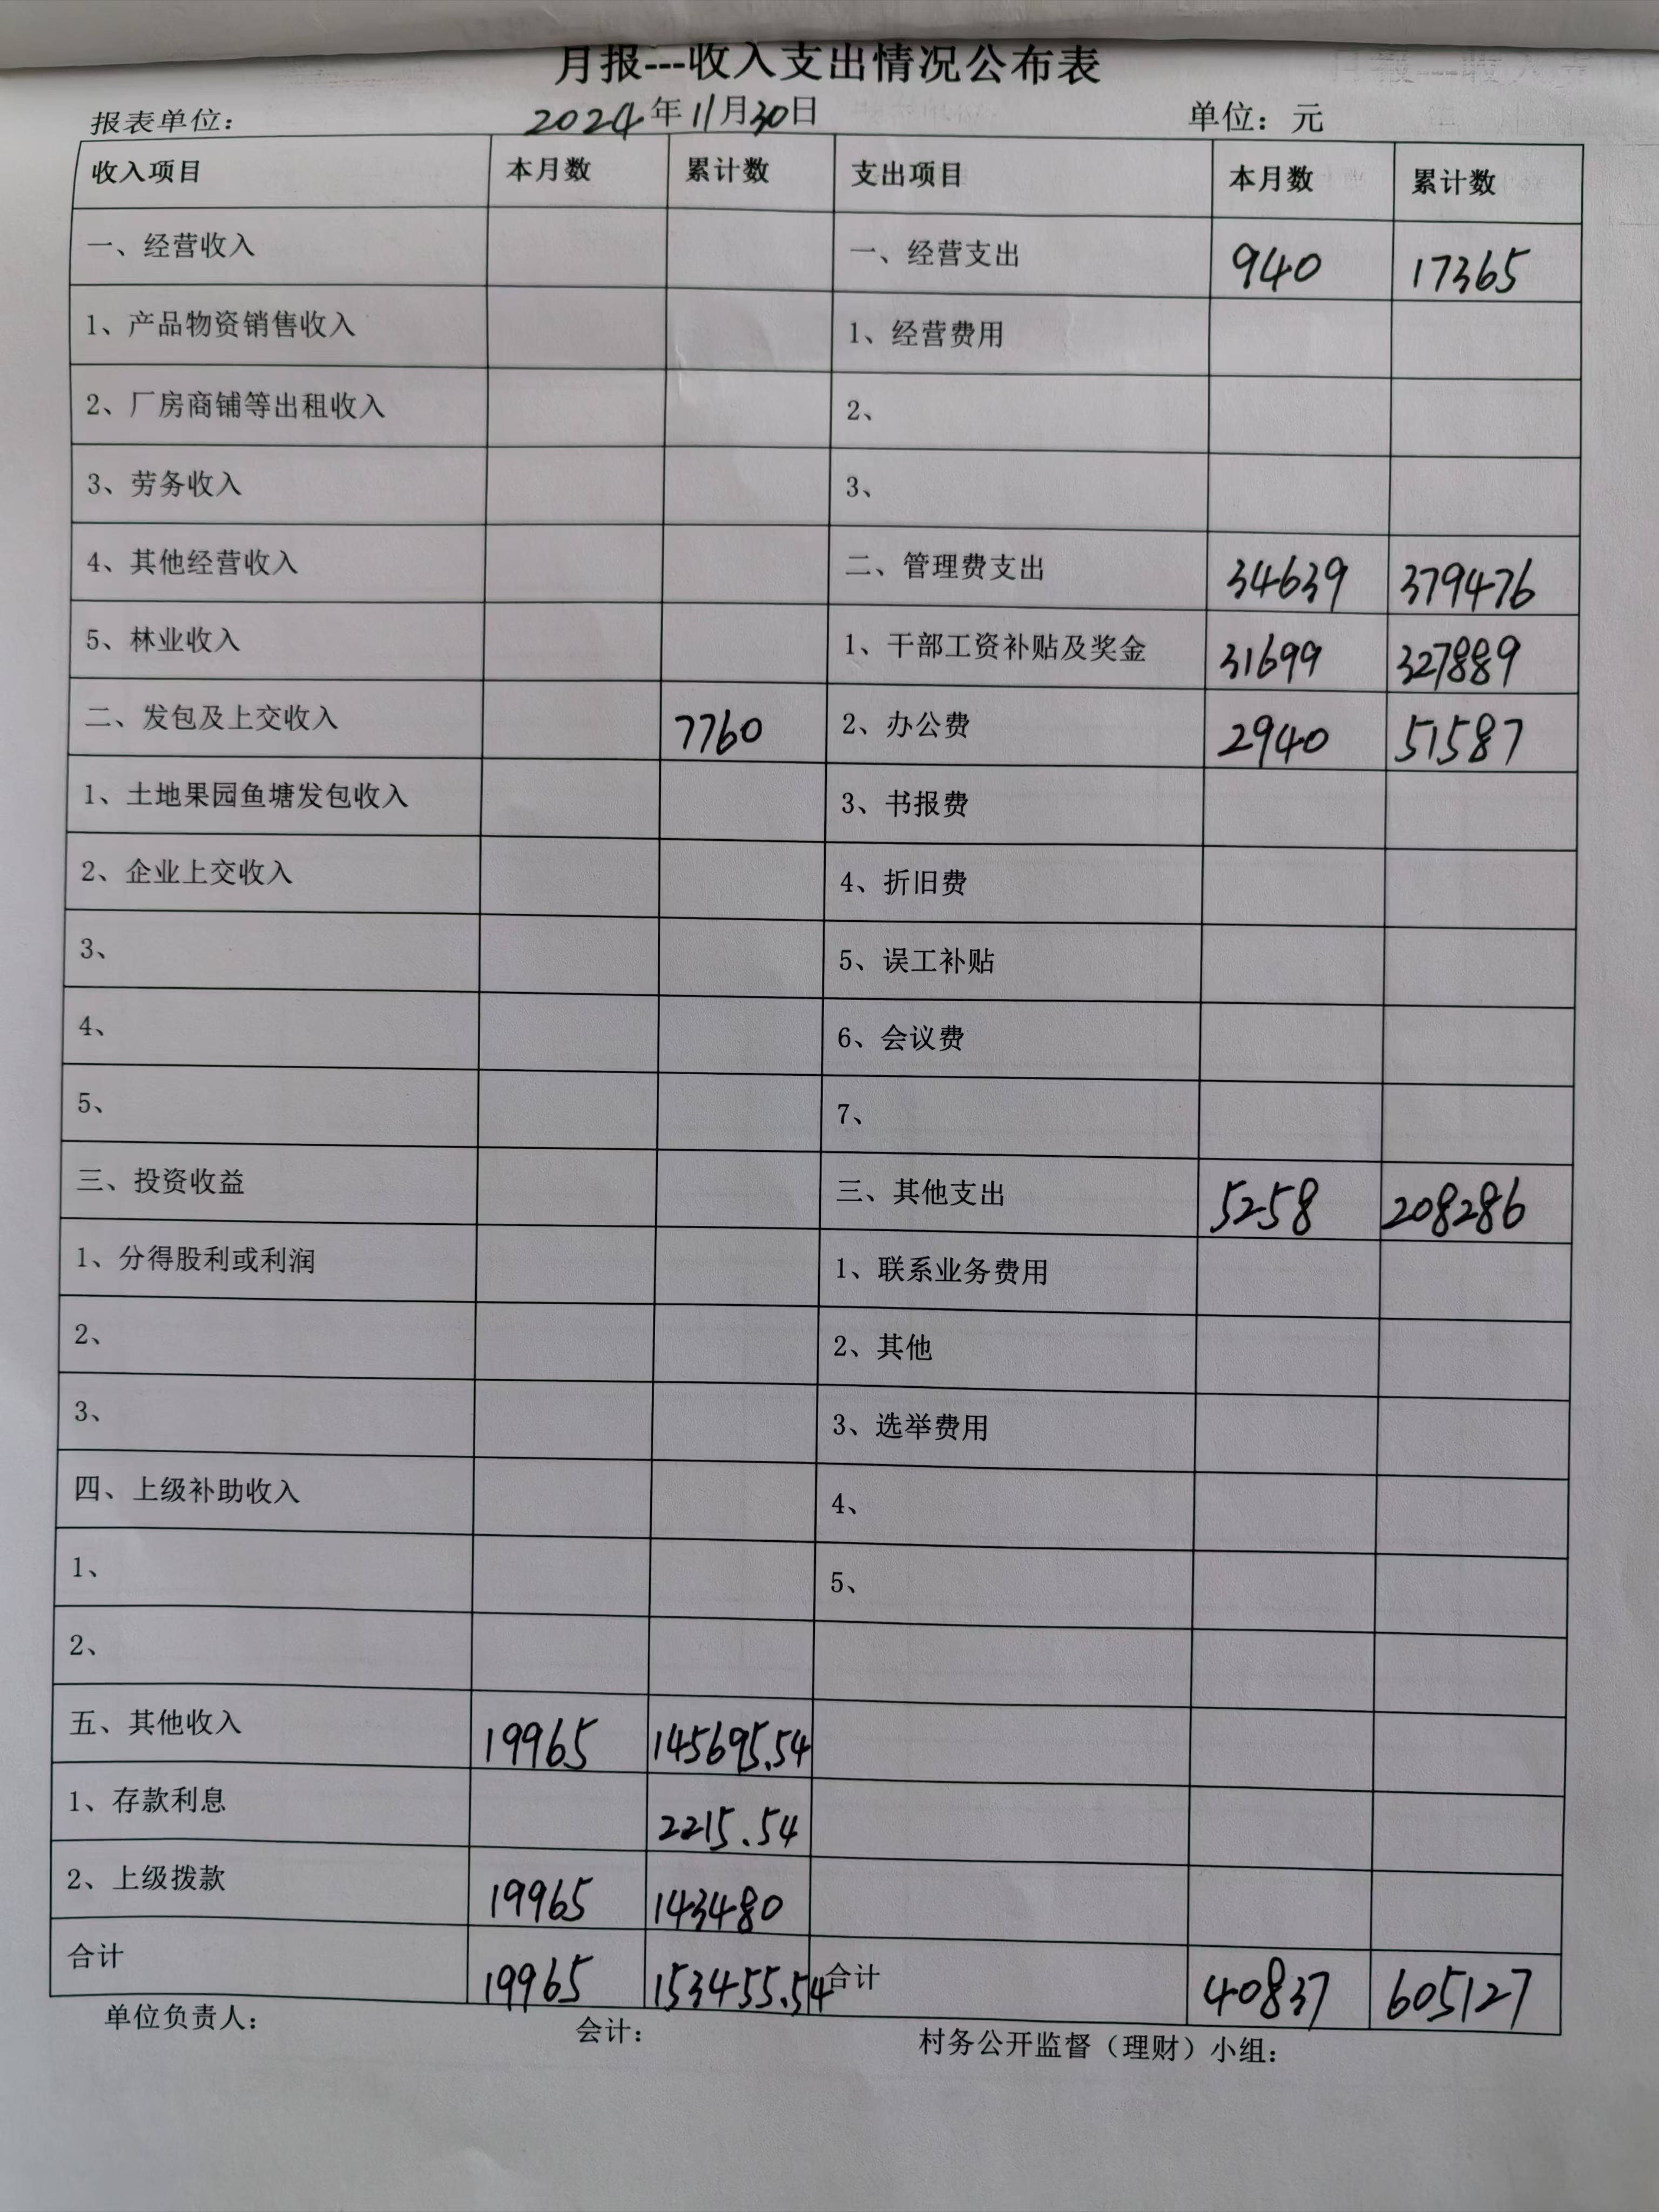 月报---收入支出情况公布表
报表单位： 2024年11月30日 单位：元
收入项目 本月数 累计数 支出项目 本月数 累计数
一、经营收入 一、经营支出 940 17365
1、产品物资销售收入 1、经营费用
2、厂房商铺等出租收入 2、
3、劳务收入 3、
4、其他经营收入 二、管理费支出 34639 379476
5、林业收入 1、干部工资补贴及奖金 31699 327889
二、发包及上交收入 7760 2、办公费 2940 51587
1、土地果园鱼塘发包收入 3、书报费
2、企业上交收入 4、折旧费
3、 5、误工补贴
4、 6、会议费
5、 7、
三、投资收益 三、其他支出 5258 208286
1、分得股利或利润 1、联系业务费用
2、 2、其他
3、 3、选举费用
四、上级补助收入 4、
1、 5、
2、
五、其他收入 19965 145695.54
1、存款利息 2215.54
2、上级拨款 19965 143480
合计 19965 153455.54 合计 40837 605127
单位负责人： 会计： 村务公开监督（理财）小组：